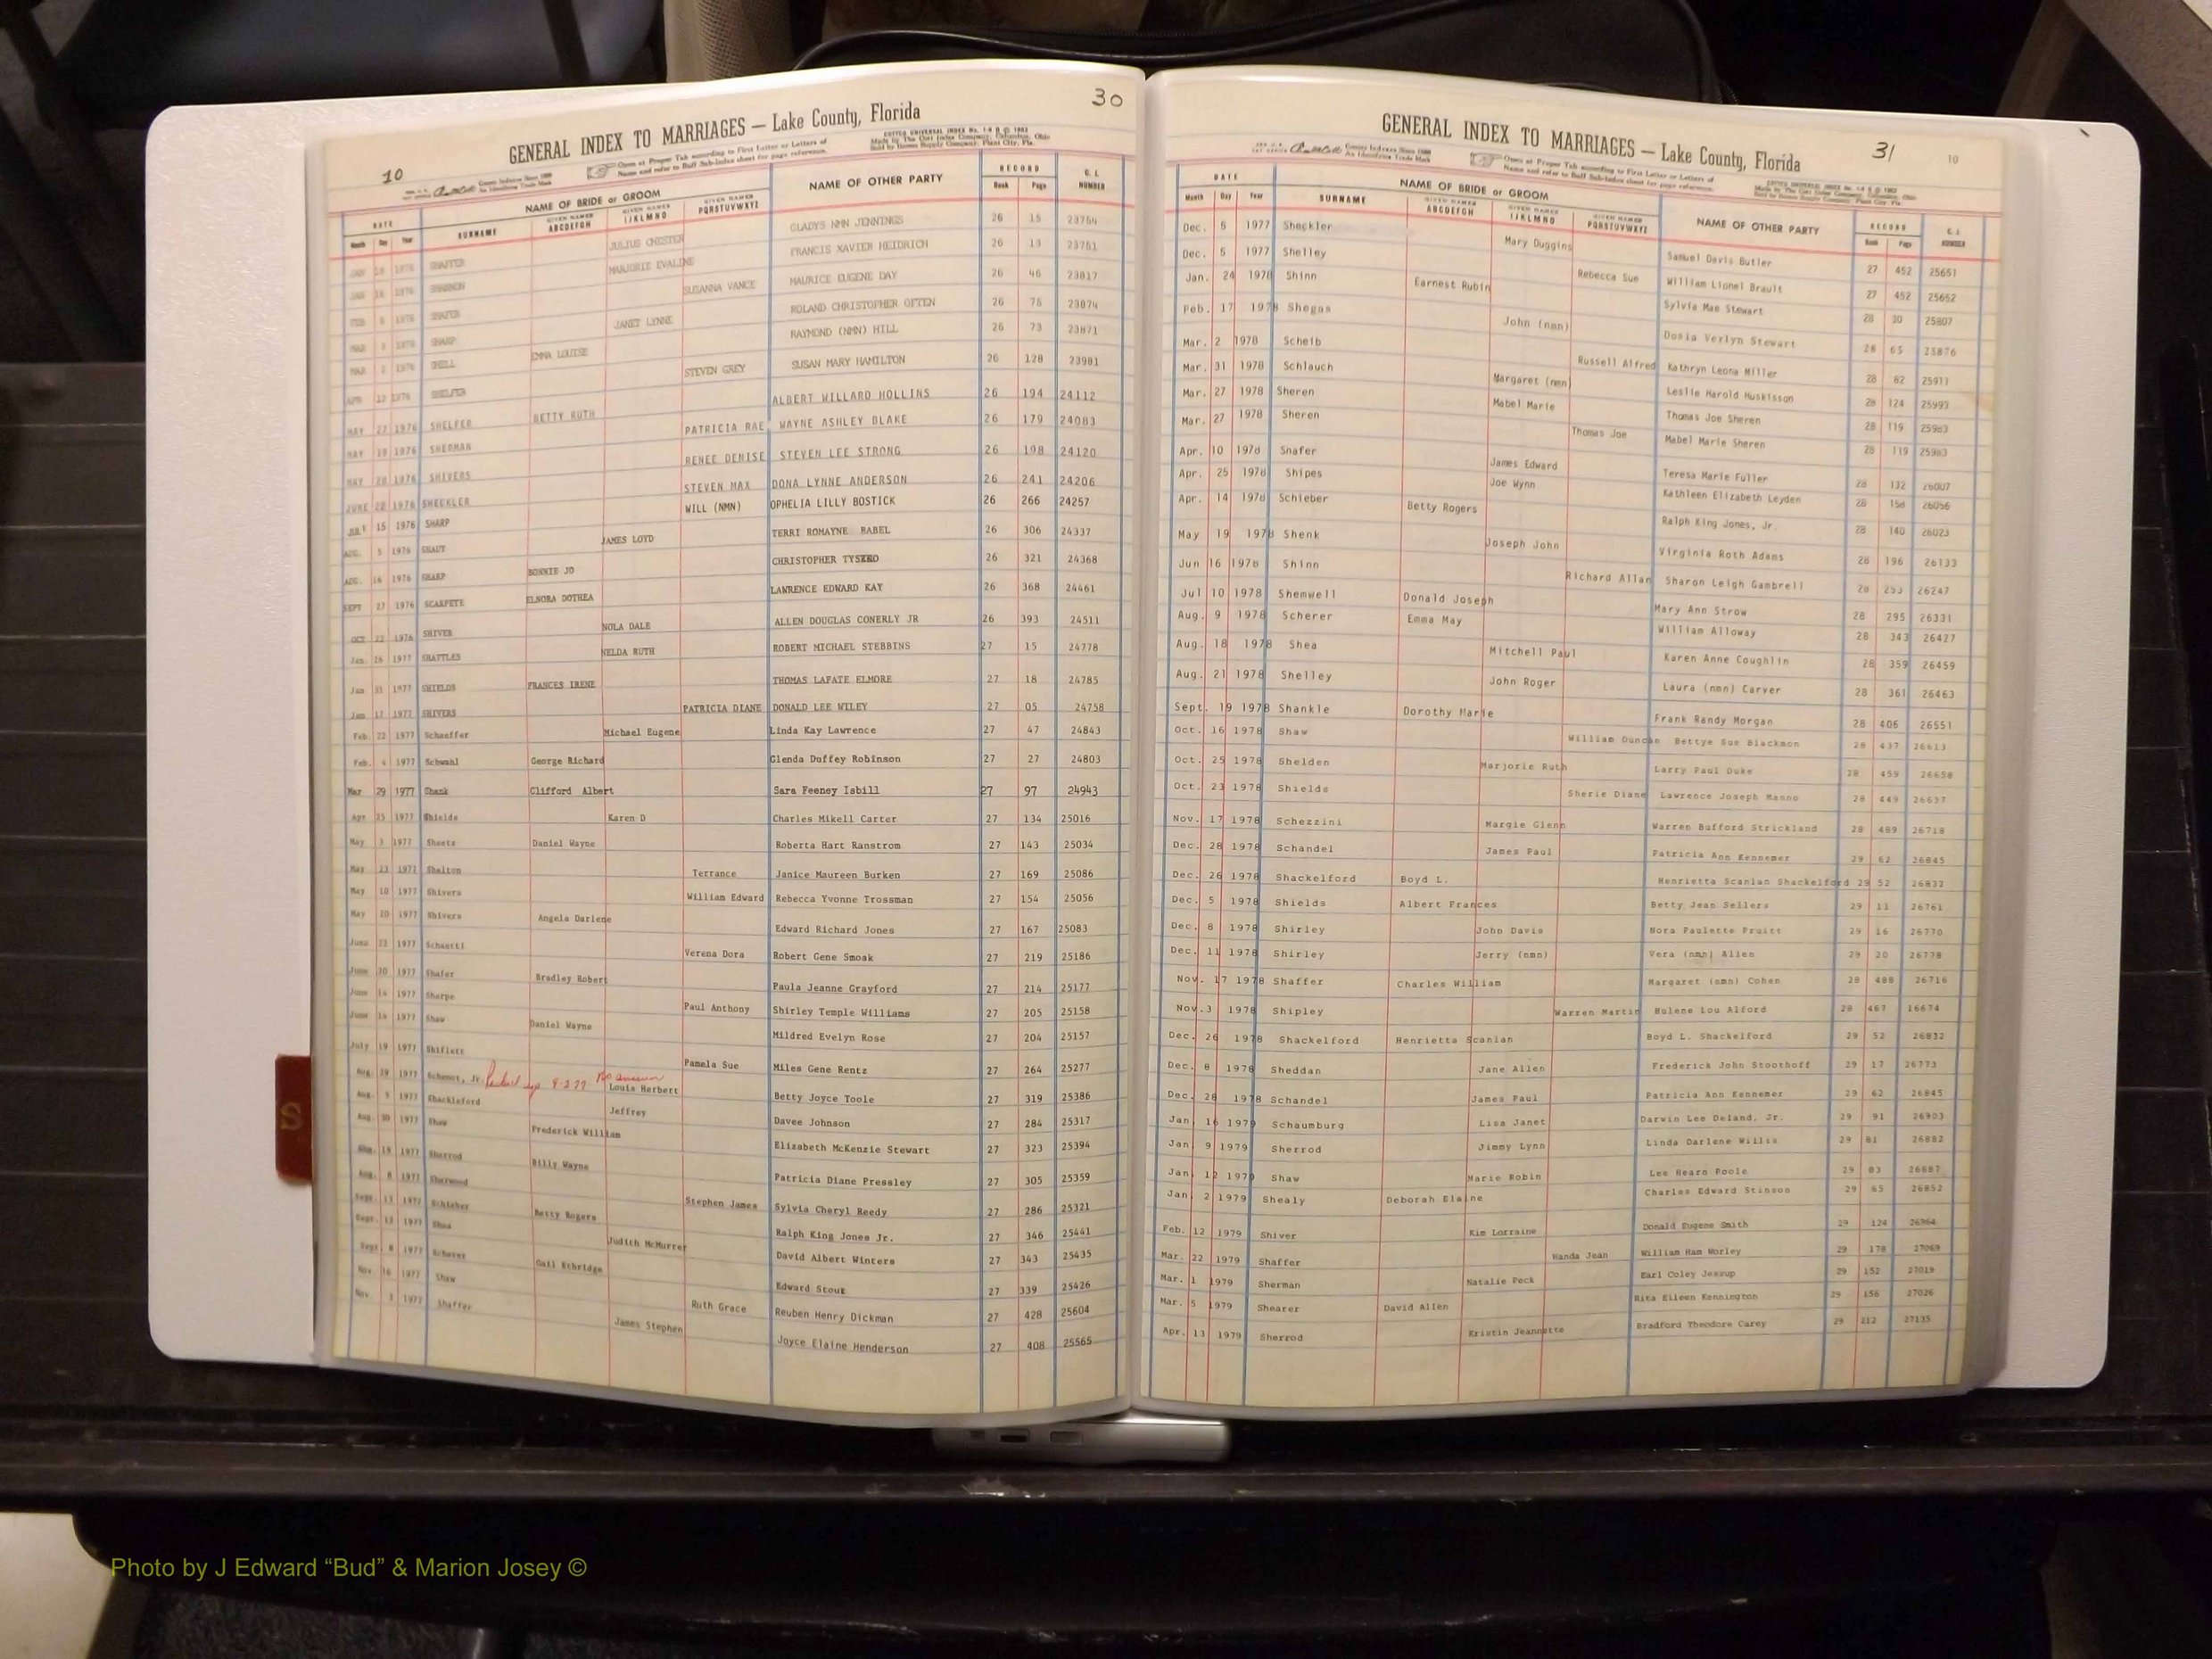 30
10
GENERAL INDEX TO MARRIAGES — Lake County, Florida
DATE NAME OF BRIDE or GROOM NAME OF OTHER PARTY RECORD
Month Day Year SURNAME GIVEN NAMES ABCDEFGH GIVEN NAMES IJKLMNO GIVEN NAMES PQRSTUVWXYZ Book Page NUMBER
JAN 1976 SHAFFER JULIUS CHESTER GLADYS NMN JENNINGS 26 15
JAN 16 1976 SHANNON MARJORIE EVALINE FRANCIS XAVIER HEIDRICH 26 13
FEB 6 1976 SHAFER SUZANNA VANCE MAURICE EUGENE DAY 26 46 23817
MAR 3 1976 SHARP JANET LYNNE ROLAND CHRISTOPHER OFTEN 26 75 23874
MAR 2 1976 SHELL EMMA LOUISE RAYMOND (NMN) HILL 26 73 23871
APR 12 1976 SHELFER STEVEN GREY SUSAN MARY HAMILTON 26 128 23981
MAY 27 1976 SHELFER BETTY RUTH ALBERT WILLARD HOLLINS 26 194 24112
MAY 19 1976 SHERMAN PATRICIA RAE WAYNE ASHLEY BLAKE 26 179 24083
MAY 28 1976 SHIVERS RENEE DENISE STEVEN LEE STRONG 26 198 24120
JUNE 28 1976 SHECKLER STEVEN MAX DONA LYNNE ANDERSON 26 241 24206
JULY 15 1976 SHARP WILL (NMN) OPHELIA LILLY BOSTICK 26 266 24257
AUG. 5 1976 SHAUT JAMES LOYD TERRI ROMAYNE BABEL 26 306 24337
AUG. 16 1976 SHARP BONNIE JO CHRISTOPHER TYSZKO 26 321 24368
SEPT 27 1976 SCARPETE ELNORA DOTHEA LAWRENCE EDWARD KAY 26 368 24461
OCT 22 1976 SHIVER NOLA DALE ALLEN DOUGLAS CONERLY JR 26 393 24511
Jan. 28 1977 SHATTLES NELDA RUTH ROBERT MICHAEL STEBBINS 27 15 24778
Jan 31 1977 SHIELDS FRANCES IRENE THOMAS LAFATE ELMORE 27 18 24785
Jan 17 1977 SHIVERS PATRICIA DIANE DONALD LEE WILEY 27 05 24758
Feb. 22 1977 Schaeffer Michael Eugene Linda Kay Lawrence 27 47 24843
Feb. 4 1977 Schwahl George Richard Glenda Duffey Robinson 27 27 24803
Mar 29 1977 Shank Clifford Albert Sara Feeney Isbill 27 97 24943
Apr 25 1977 Shields Karen D Charles Mikell Carter 27 134 25016
May 3 1977 Sheets Daniel Wayne Roberta Hart Ranstrom 27 143 25034
May 23 1977 Shelton Terrance Janice Maureen Burken 27 169 25086
May 10 1977 Shivers William Edward Rebecca Yvonne Trossman 27 154 25056
May 20 1977 Shivers Angela Darlene Edward Richard Jones 27 167 25083
June 23 1977 Verena Dora Robert Gene Smoak 27 219 25186
June 20 1977 Shafer Bradley Robert Paula Jeanne Grayford 27 214 25177
June 14 1977 Sharpe Paul Anthony Shirley Temple Williams 27 205 25158
June 14 1977 Shaw Daniel Wayne Mildred Evelyn Rose 27 204 25157
July 19 1977 Shiflett Pamela Sue Miles Gene Rentz 27 264 25277
Aug. 29 1977 Jr. 9-2-77 No answer Louis Herbert Betty Joyce Toole 27 319 25386
Aug. 5 1977 Shackleford Jeffrey Davee Johnson 27 284 25317
Aug. 30 1977 Shaw Frederick William Elizabeth McKenzie Stewart 27 323 25394
Aug. 19 1977 Sherrod Billy Wayne Patricia Diane Pressley 27 305 25359
Aug. 8 1977 Sherwood Stephen James Sylvia Cheryl Reedy 27 286 25321
Sept. 13 1977 Schieber Betty Rogers Ralph King Jones Jr. 27 346 25441
Sept. 12 1977 Shea Judith McMurrer David Albert Winters 27 343 25435
Sept. 8 1977 Scherer Gail Ethridge Edward Stout 27 339 25426
Nov. 16 1977 Shaw Ruth Grace Reuben Henry Dickman 27 428 25604
Nov. 1 1977 Shaffer James Stephen Joyce Elaine Henderson 27 408 25565
GENERAL INDEX TO MARRIAGES — Lake County, Florida
31 10
DATE NAME OF BRIDE or GROOM NAME OF OTHER PARTY RECORD
Month Day Year SURNAME GIVEN NAMES ABCDEFGH GIVEN NAMES IJKLMNO GIVEN NAMES PQRSTUVWXYZ Book Page NUMBER
Dec. 6 1977 Sheckler Mary Duggins Samuel Davis Butler 27 452 25651
Dec. 5 1977 Shelley Rebecca Sue William Lionel Brault 27 452 25652
Jan. 24 1978 Shinn Earnest Rubin Sylvia Mae Stewart 28 30 25807
Feb. 17 1978 Shegas John (nmn) Dosia Verlyn Stewart 28 65 25876
Mar. 2 1978 Scheib Russell Alfred Kathryn Leona Miller 28 82 25911
Mar. 31 1978 Schlauch Margaret (nmn) Leslie Harold Huskisson 28 124 25993
Mar. 27 1978 Sheren Mabel Marie Thomas Joe Sheren 28 119 25983
Mar. 27 1978 Sheren Thomas Joe Mabel Marie Sheren 28 119 25983
Apr. 10 1978 Shafer James Edward Teresa Marie Fuller 28 132 26007
Apr. 25 1978 Shipes Joe Wynn Kathleen Elizabeth Leyden 28 156 26056
Apr. 14 1978 Schieber Betty Rogers Ralph King Jones, Jr. 28 140 26023
May 19 1978 Shenk Joseph John Virginia Roth Adams 28 196 26133
Jun 16 1978 Shinn Richard Allan Sharon Leigh Gambrell 28 253 26247
Jul 10 1978 Shemwell Donald Joseph Mary Ann Strow 28 295 26331
Aug. 9 1978 Scherer Emma May William Alloway 28 343 26427
Aug. 18 1978 Shea Mitchell Paul Karen Anne Coughlin 28 359 26459
Aug. 21 1978 Shelley John Roger Laura (nmn) Carver 28 361 26463
Sept. 19 1978 Shankle Dorothy Marie Frank Randy Morgan 28 406 26551
Oct. 16 1978 Shaw William Duncan Bettye Sue Blackmon 28 437 26613
Oct. 25 1978 Shelden Marjorie Ruth Larry Paul Duke 28 459 26658
Oct. 23 1978 Shields Sherie Diane Lawrence Joseph Manno 28 449 26637
Nov. 17 1978 Schezzini Margie Glenn Warren Bufford Strickland 28 489 26718
Dec. 28 1978 Schandel James Paul Patricia Ann Kennemer 29 62 26845
Dec. 26 1978 Shackelford Boyd L. Henrietta Scanlan Shackelford 29 52 26832
Dec. 5 1978 Shields Albert Frances Betty Jean Sellers 29 11 26761
Dec. 8 1978 Shirley John Davis Nora Paulette Pruitt 29 16 26770
Dec. 11 1978 Shirley Jerry (nmn) Vera (nmn) Allen 29 20 26778
Nov. 17 1978 Shaffer Charles William Margaret (nmn) Cohen 28 488 26716
Nov. 3 1978 Shipley Warren Martin Hulene Lou Alford 28 467 16674
Dec. 26 1978 Shackelford Henrietta Scanlan Boyd L. Shackelford 29 52 26832
Dec. 8 1978 Sheddan Jane Allen Frederick John Stoothoff 29 17 26773
Dec. 28 1978 Schandel James Paul Patricia Ann Kennemer 29 62 26845
Jan 16 1979 Schaumburg Lisa Janet Darwin Lee Deland, Jr. 29 91 26903
Jan 9 1979 Sherrod Jimmy Lynn Linda Darlene Willis 29 81 26882
Jan 12 1979 Shaw Marie Robin Lee Hearn Poole 29 83 26887
Jan 2 1979 Shealy Deborah Elaine Charles Edward Stinson 29 65 26852
Feb. 12 1979 Shiver Kim Lorraine Donald Eugene Smith 29 124 26964
Mar. 22 1979 Shaffer Wanda Jean William Ham Worley 29 178 27069
Mar. 1 1979 Sherman Natalie Peck Earl Coley Jessup 29 152 27019
Mar. 5 1979 Shearer David Allen Rita Eileen Kennington 29 156 27026
Apr. 13 1979 Sherrod Kristin Jeannette Bradford Theodore Carey 29 212 27135
S
Photo by J Edward “Bud” & Marion Josey ©